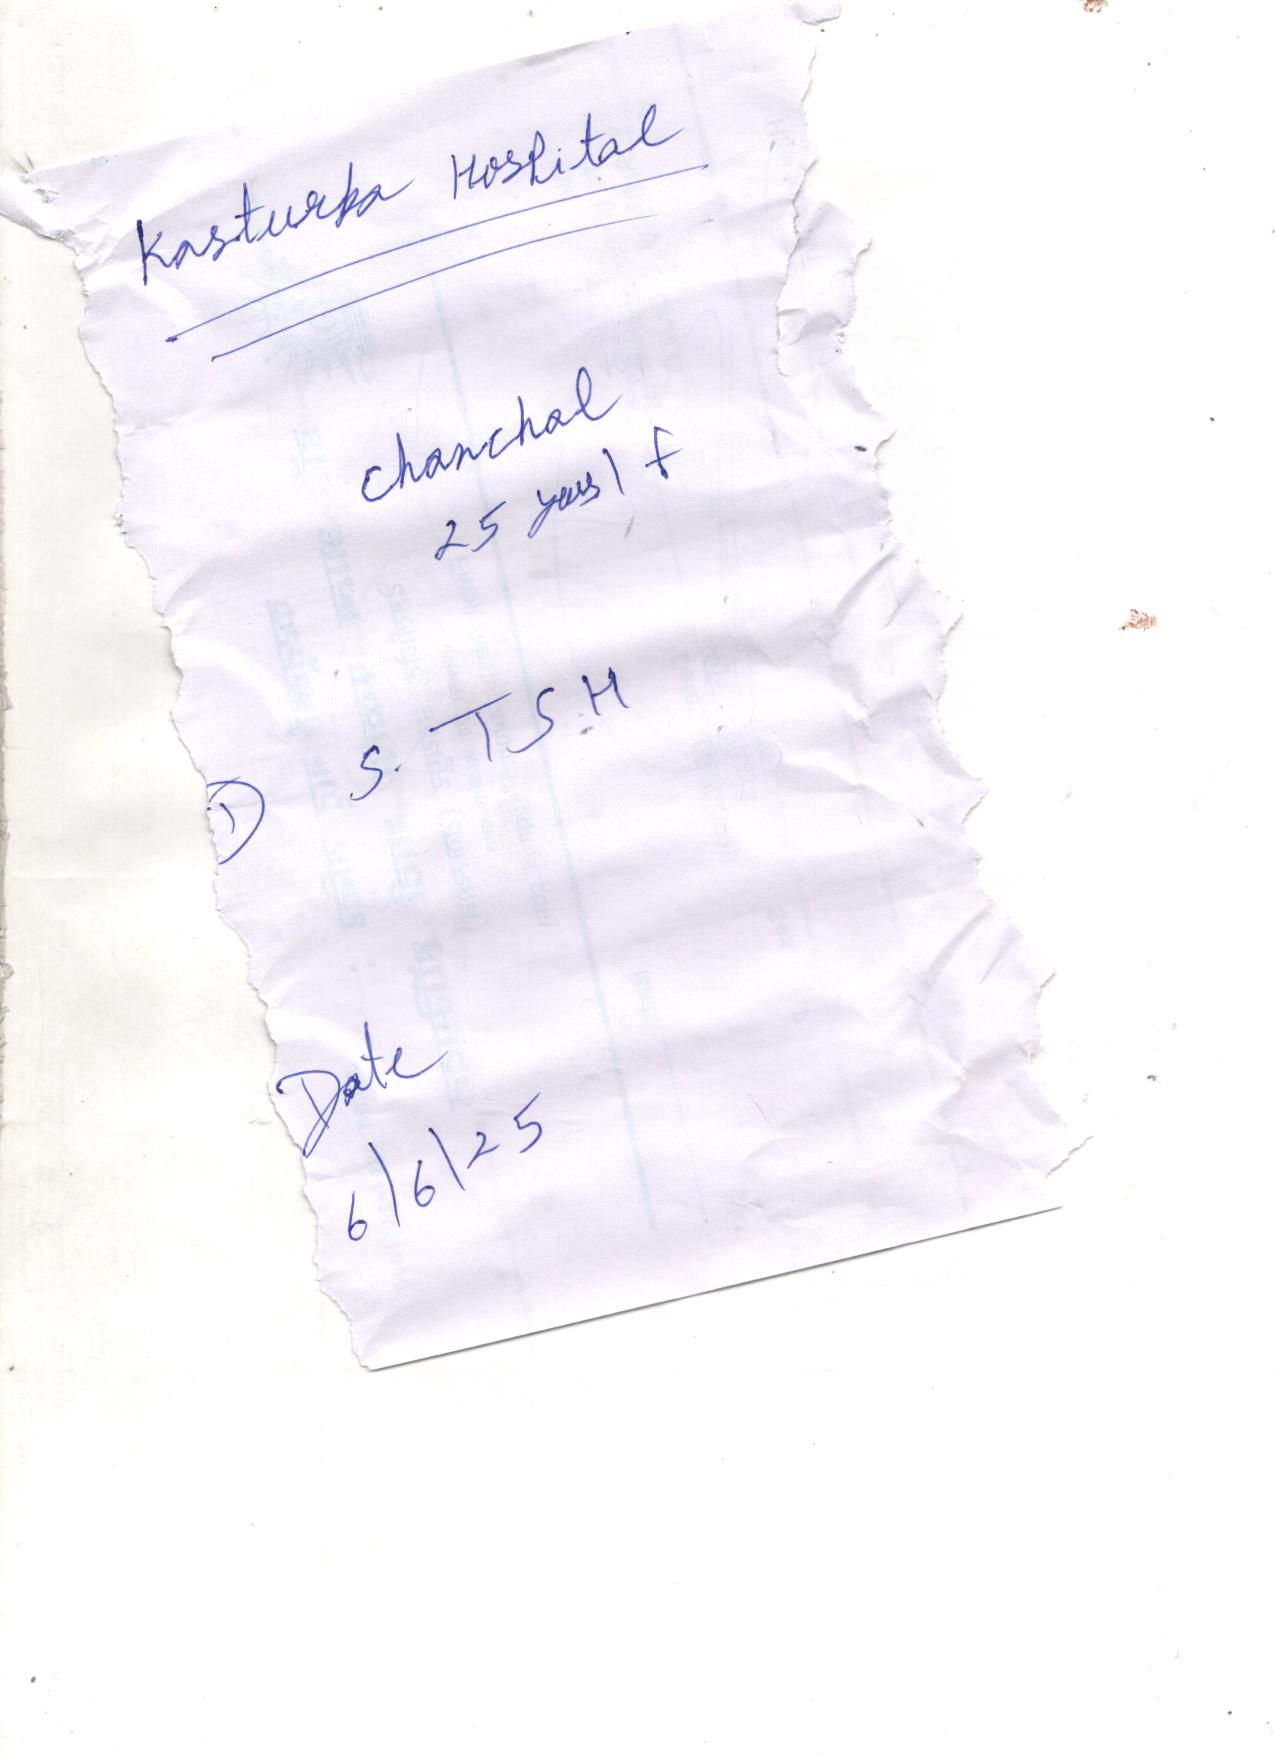 Kasturba Hospital
Chanchal
25 years / f
1) S. TSH
Date
6/6/25